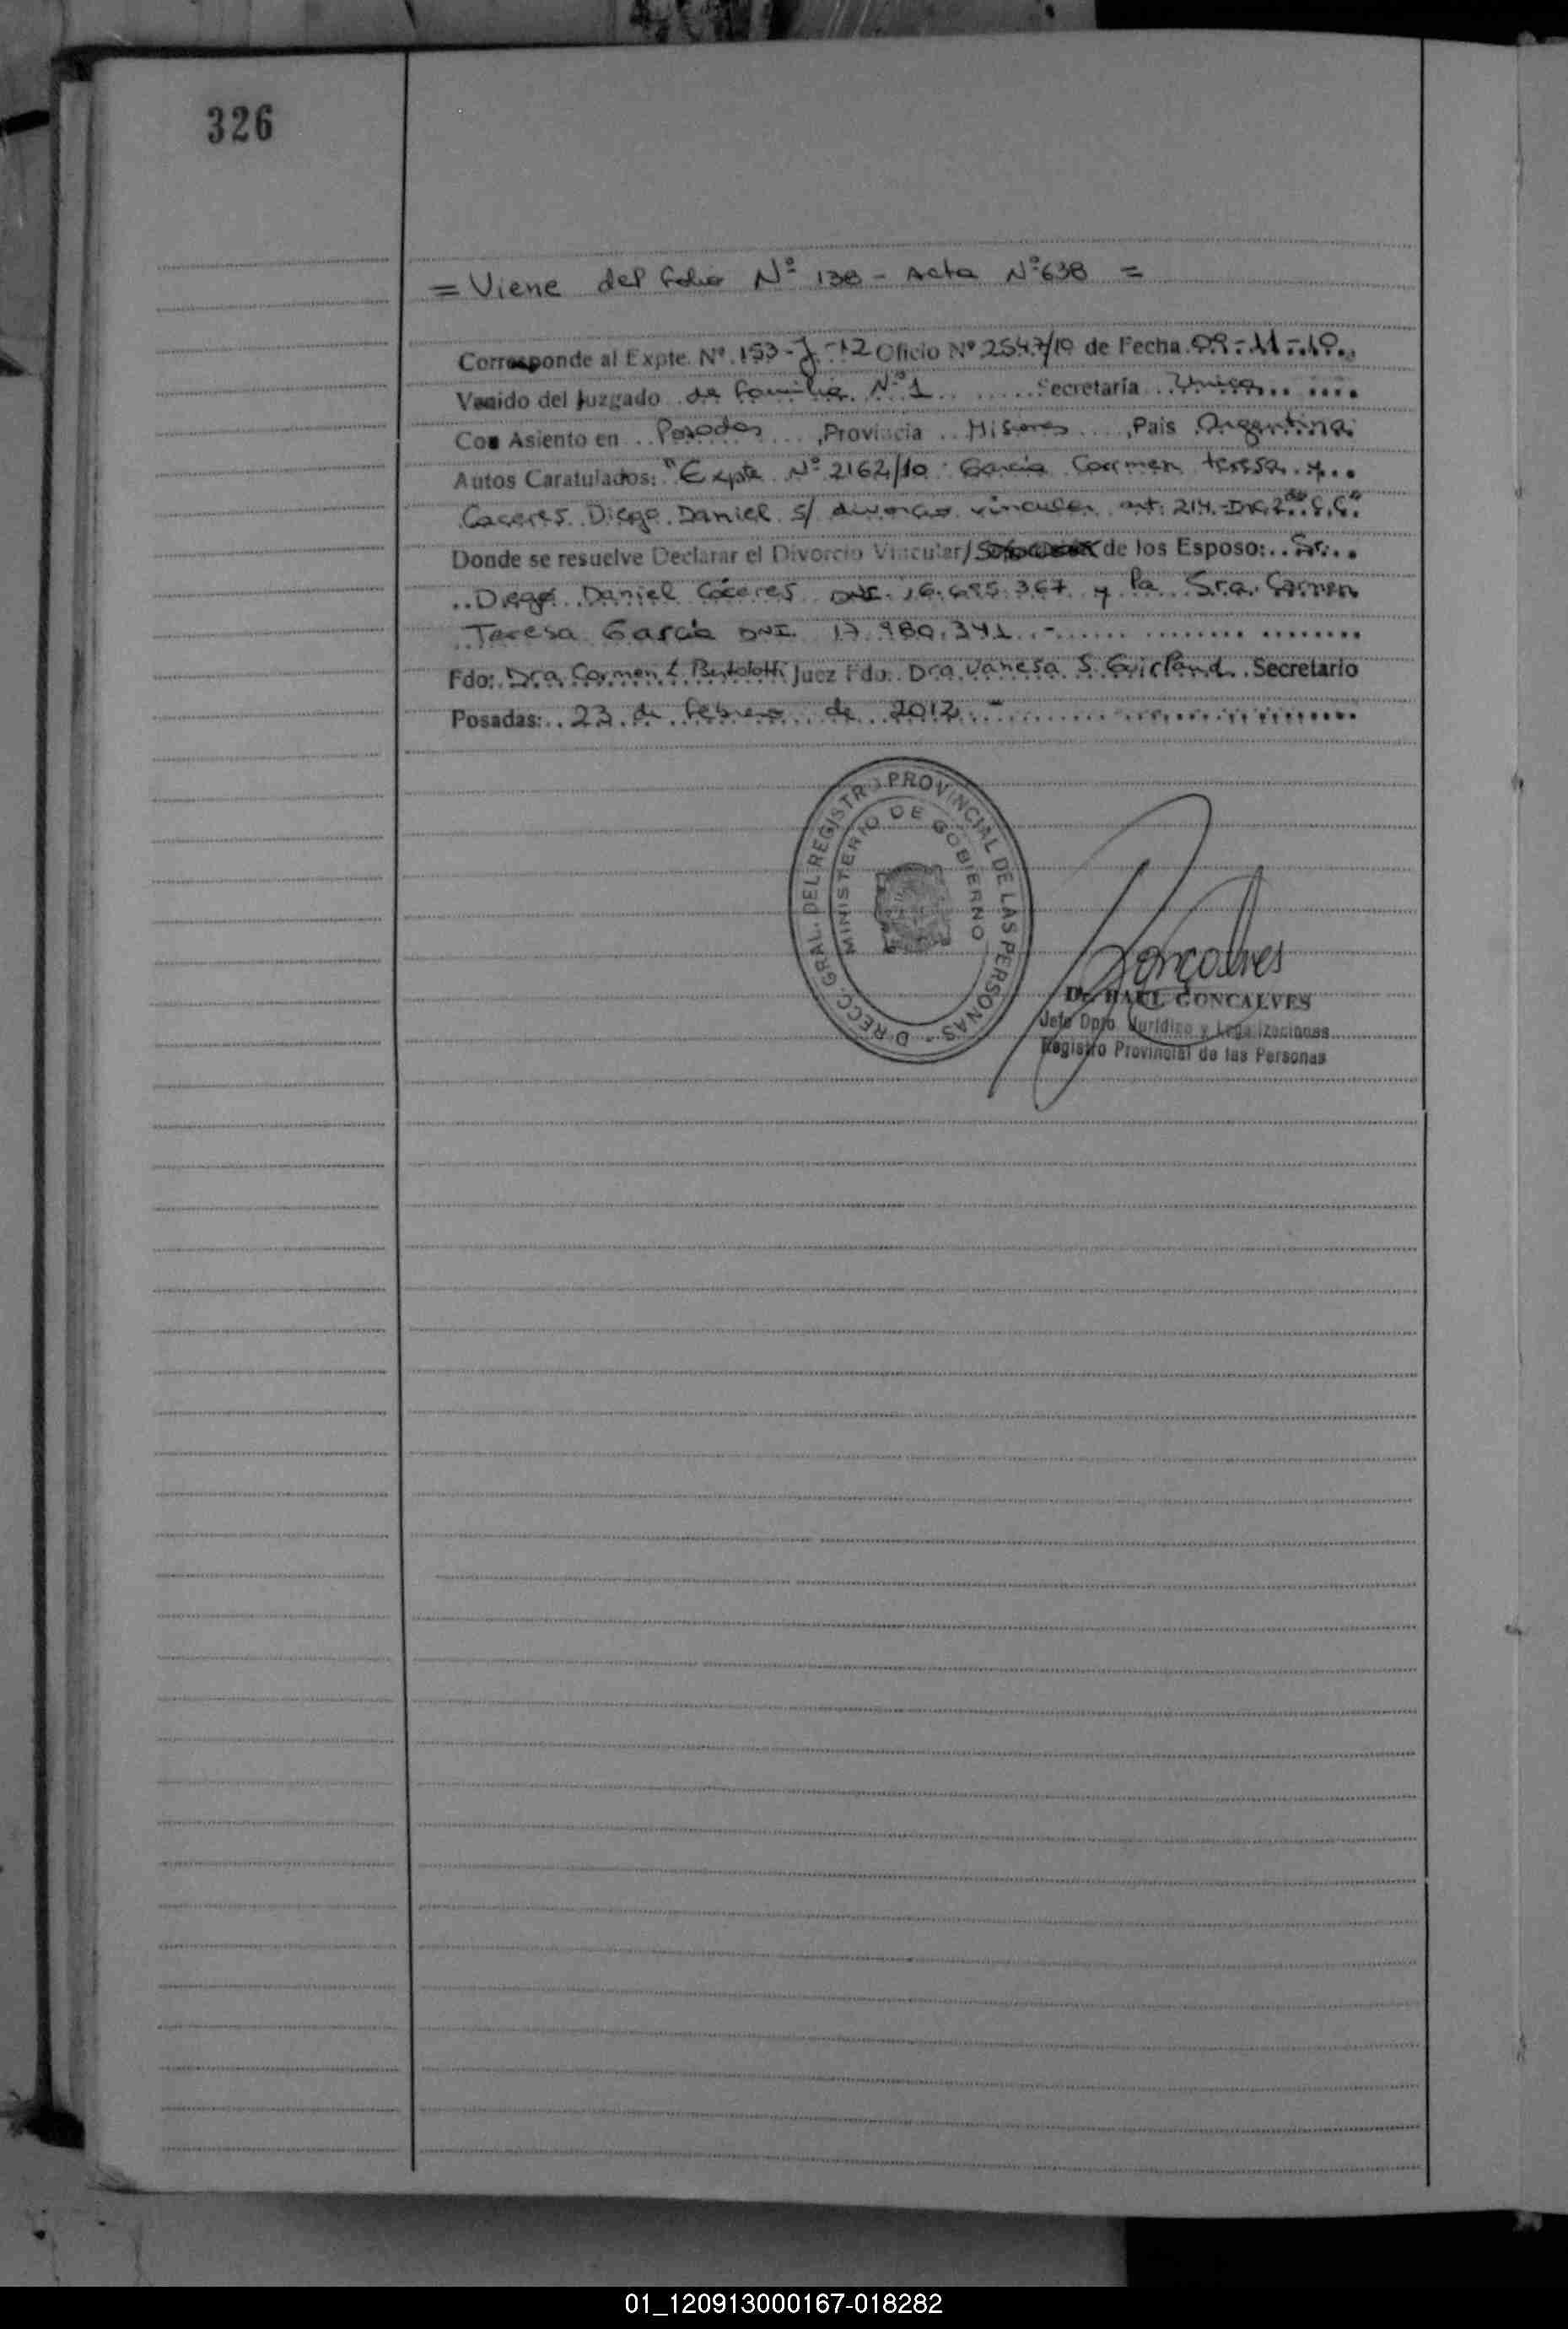 326
= Viene del folio Nº 138 - Acta Nº 638 =
Corresponde al Expte. Nº 153-J-12 Oficio Nº 2547/10 de Fecha 09-11-10
Venido del Juzgado de Familia Nº 1 Secretaría Unica
Con Asiento en Posadas, Provincia Misiones, Pais Argentina
Autos Caratulados: "Expte Nº 2162/10 Garcia Carmen teresa y
Caceres Diego Daniel s/ divorcio vincular art. 214 C.C."
Donde se resuelve Declarar el Divorcio Vincular/ de los Esposo: Sr.
Diego Daniel Cáceres DNI. 16.695.367 y la Sra. Carmen
Teresa García DNI. 17.980.341.-
Fdo: Dra. Carmen L. Bertolotti Juez Fdo: Dra. Vanesa S. Guirland. Secretario
Posadas: 23 de febrero de 2012 -
DIRECC. GRAL. DEL REGISTRO PROVINCIAL DE LAS PERSONAS -
MINISTERIO DE GOBIERNO
Gonçalves
Dr. RAUL GONCALVES
Jefe Dpto. Jurídico y Legalizaciones
Registro Provincial de las Personas
01_120913000167-018282